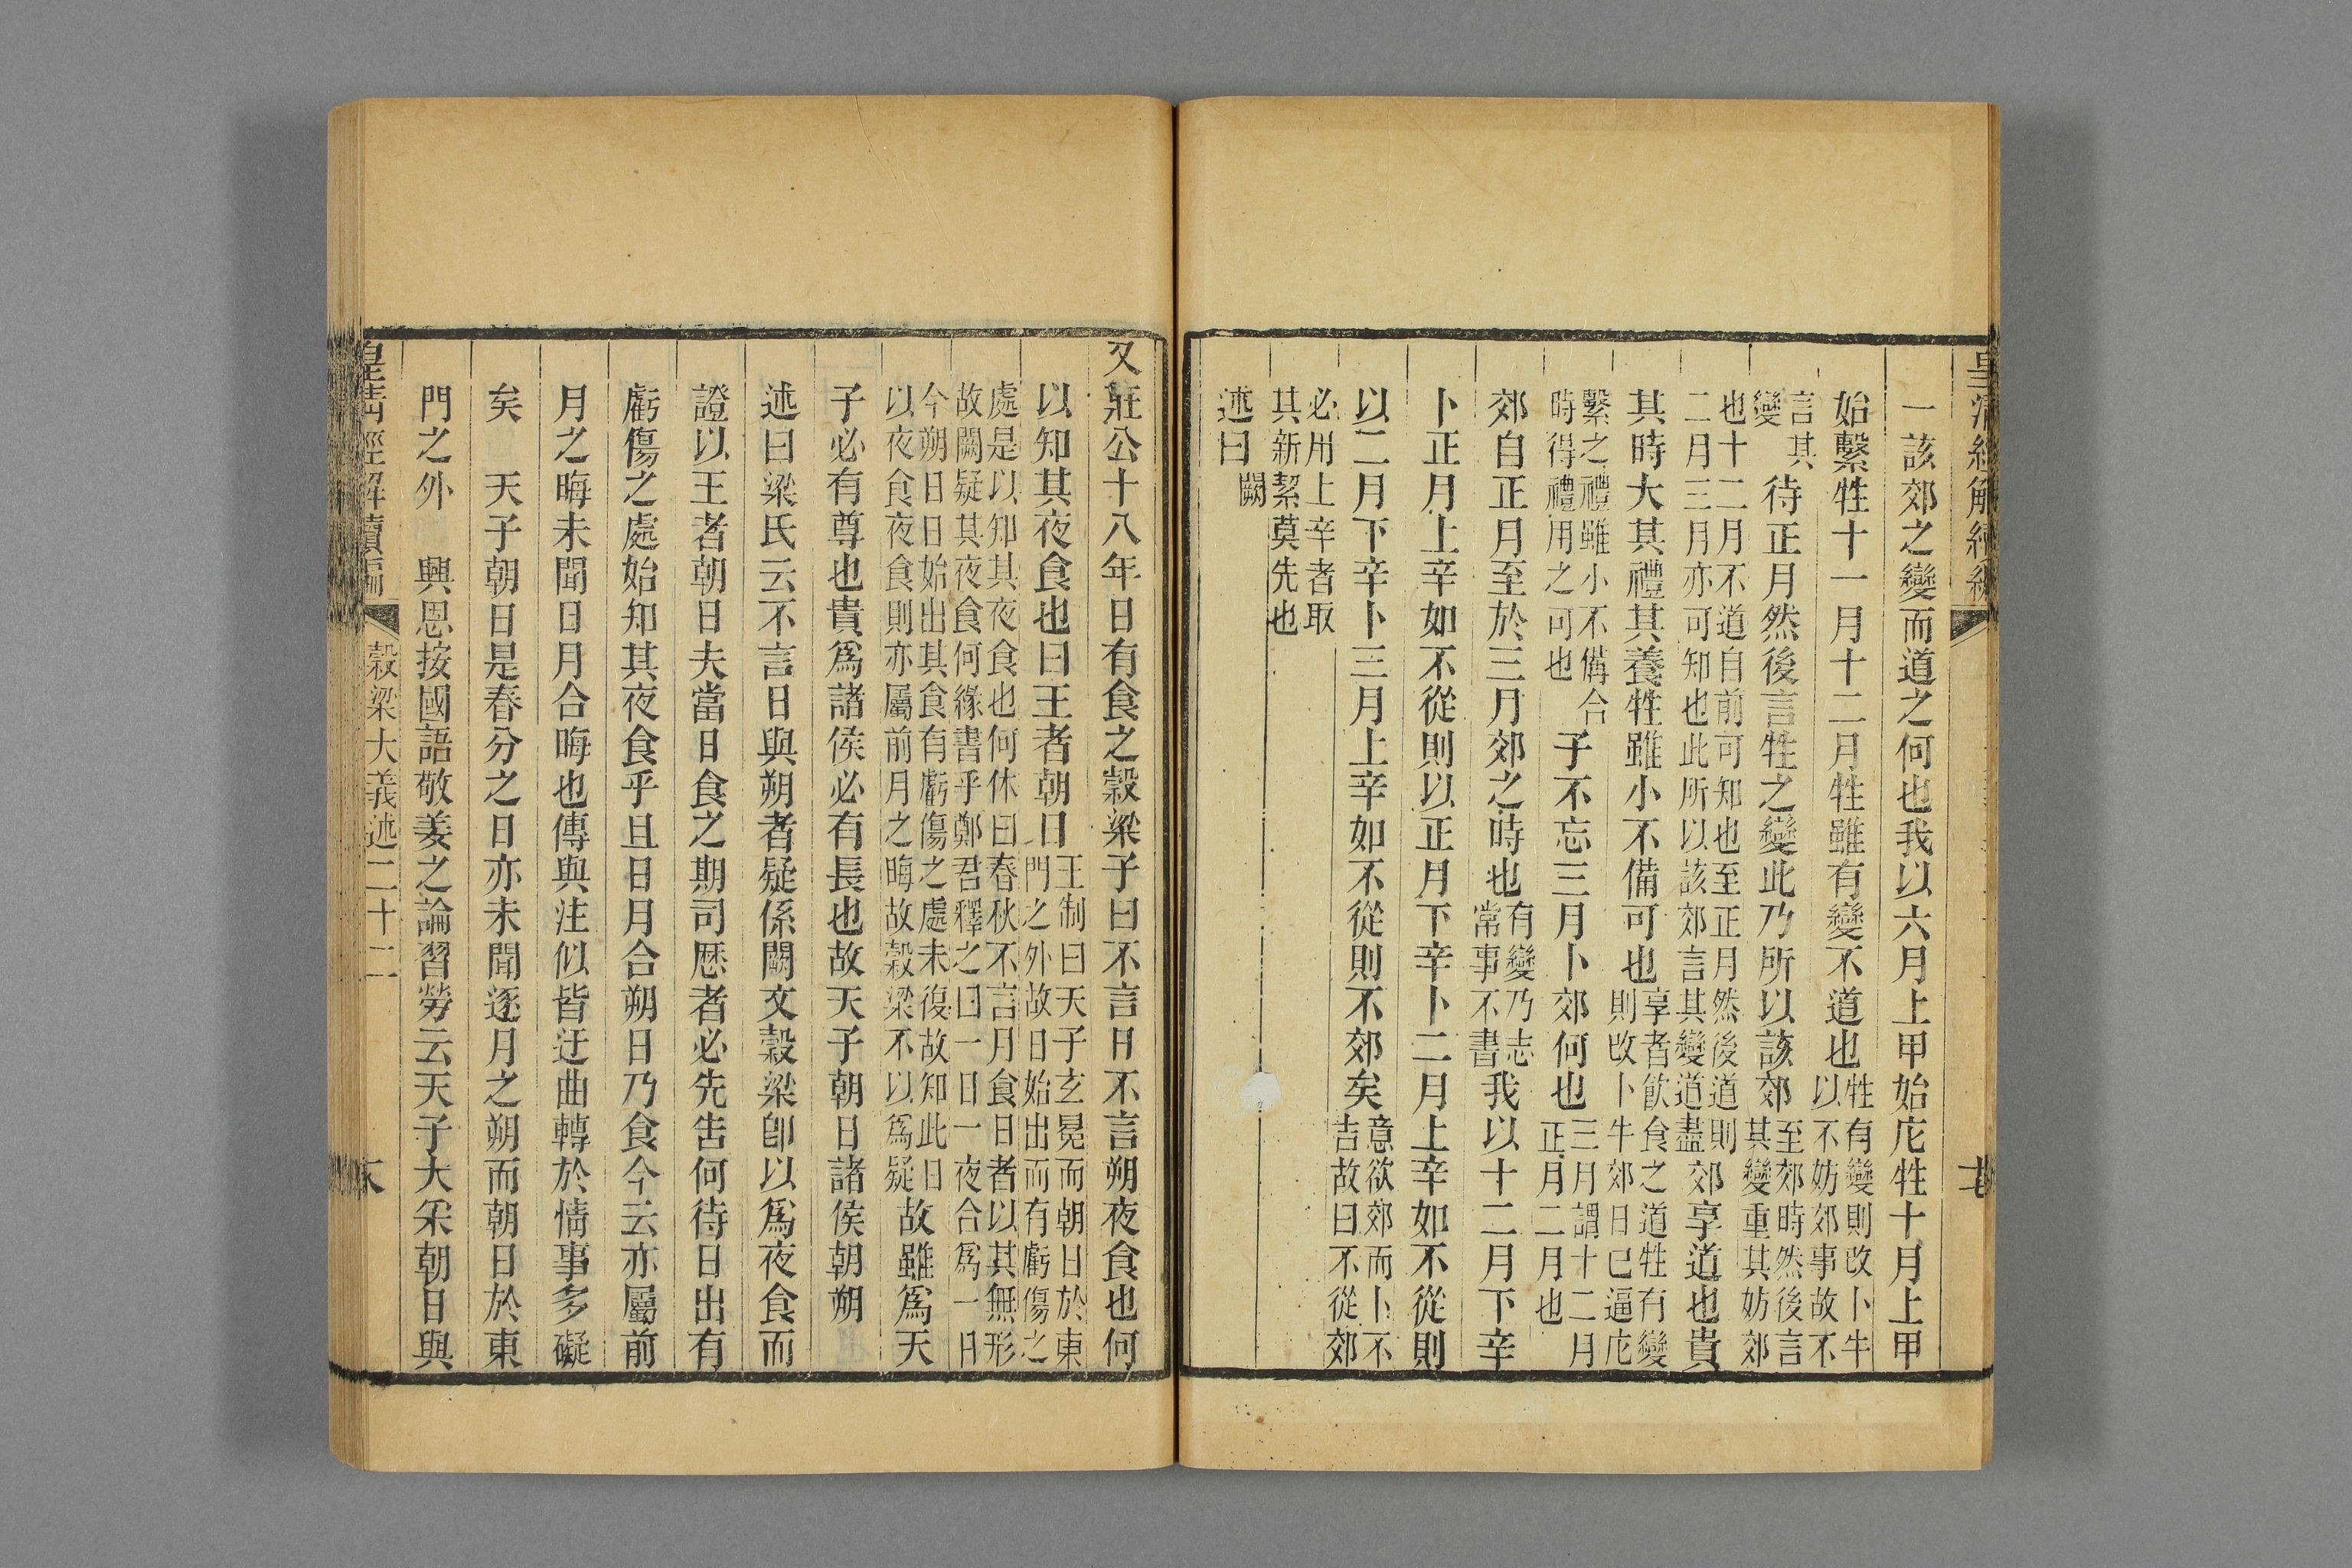 一該郊之變而道之何也我以六月上甲始庀牲十月上甲
始繫牲十一月十二月牲雖有變不道也牲有變則改卜牛以不妨郊事故不
言其變待正月然後言牲之變此乃所以該郊至郊時然後言其變重其妨郊
也十二月不道自前可知也至正月然後道則二月三月亦可知也此所以該郊言其變道盡郊享道也貴
其時大其禮其養牲雖小不備可也享者飲食之道牲有變則改卜牛郊日已逼庀
繫之禮雖小不備合時得禮用之可也子不忘三月卜郊何也三月謂十二月正月二月也
郊自正月至於三月郊之時也有變乃志常事不書我以十二月下辛
卜正月上辛如不從則以正月下辛卜二月上辛如不從則
以二月下辛卜三月上辛如不從則不郊矣意欲郊而卜不吉故曰不從郊
必用上辛者取其新絜莫先也
述曰闕
又莊公十八年日有食之穀梁子曰不言日不言朔夜食也何
以知其夜食也曰王者朝日王制曰天子玄冕而朝日於東門之外故日始出而有虧傷之
處是以知其夜食也何休曰春秋不言月食日者以其無形故闕疑其夜食何緣書乎鄭君釋之曰一日一夜合爲一日
今朔日日始出其食有虧傷之處未復故知此日以夜食夜食則亦屬前月之晦故穀梁不以爲疑故雖爲天
子必有尊也貴爲諸侯必有長也故天子朝日諸侯朝朔
述曰梁氏云不言日與朔者疑係闕文穀梁卽以爲夜食而
證以王者朝日夫當日食之期司厯者必先告何待日出有
虧傷之處始知其夜食乎且日月合朔日乃食今云亦屬前
月之晦未聞日月合晦也傳與注似皆迂曲轉於情事多礙
矣　天子朝日是春分之日亦未聞逐月之朔而朝日於東
門之外　興恩按國語敬姜之論習勞云天子大采朝日與
皇淸經解續編　穀梁大義述二十二